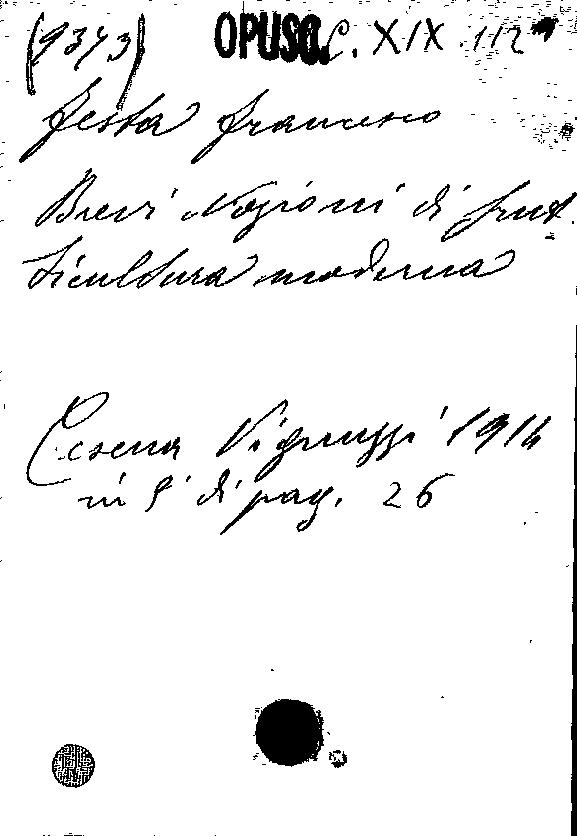 (9373) OPUSC. C. XIX 112
Festa Francesco
Brevi Nozioni di frut
ticultura moderna
Cesena Vignuzzi 1914
in 8° di pag. 26